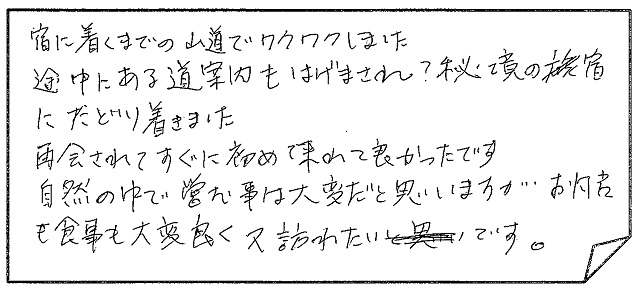 宿に着くまでの山道でワクワクしました
途中にある道案内もはげまされ?秘境の旅宿
にたどり着きました
再会されてすぐに初めて来れて良かったです
自然の中で営む事は大変だと思いますが‥お付き
も食事も大変良く又訪れたいです。